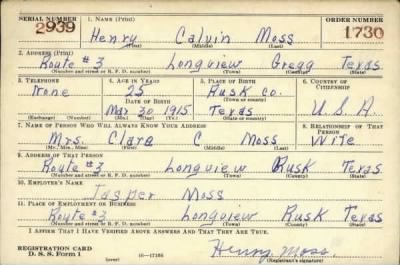 SERIAL NUMBER 1. NAME (Print) ORDER NUMBER
2939 Henry Calvin Moss 1730
(First) (Middle) (Last)
2. ADDRESS (Print)
Route #3 Longview Gregg Texas
(Number and street or R. F. D. number) (Town) (County) (State)
3. TELEPHONE 4. AGE IN YEARS 5. PLACE OF BIRTH 6. COUNTRY OF CITIZENSHIP
None 25 Rusk Co.
DATE OF BIRTH (Town or county)
Mar 30 1915 Texas U.S.A
(Exchange) (Number) (Mo.) (Day) (Yr.) (State or country)
7. NAME OF PERSON WHO WILL ALWAYS KNOW YOUR ADDRESS 8. RELATIONSHIP OF THAT PERSON
Mrs. Clara C Moss Wife
(Mr., Mrs., Miss) (First) (Middle) (Last)
9. ADDRESS OF THAT PERSON
Route #3 Longview Rusk Texas
(Number and street or R. F. D. number) (Town) (County) (State)
10. EMPLOYER'S NAME
Jasper Moss
11. PLACE OF EMPLOYMENT OR BUSINESS
Route #3 Longview Rusk Texas
(Number and street or R. F. D. number) (Town) (County) (State)
I AFFIRM THAT I HAVE VERIFIED ABOVE ANSWERS AND THAT THEY ARE TRUE.
REGISTRATION CARD Henry Moss.
D. S. S. Form 1 (over) 16-17105 (Registrant's signature)